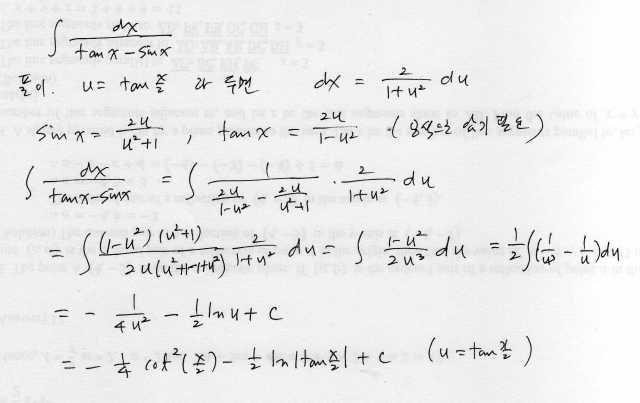 ∫ dx / (tan x - sin x)
풀이. u = tan x/2 라 두면 dx = 2/(1+u²) du
sin x = 2u/(u²+1) , tan x = 2u/(1-u²) (
∫ dx/(tan x - sin x) = ∫ 1/(2u/(1-u²) - 2u/(u²+1)) · 2/(1+u²) du
= ∫ (1-u²)(u²+1)/(2u(u²+1-1+u²)) 2/(1+u²) du = ∫ (1-u²)/(2u³) du = 1/2 ∫(1/u³ - 1/u)du
= - 1/(4u²) - 1/2 ln u + c
= - 1/4 cot²(x/2) - 1/2 ln |tan x/2| + c (u = tan x/2)